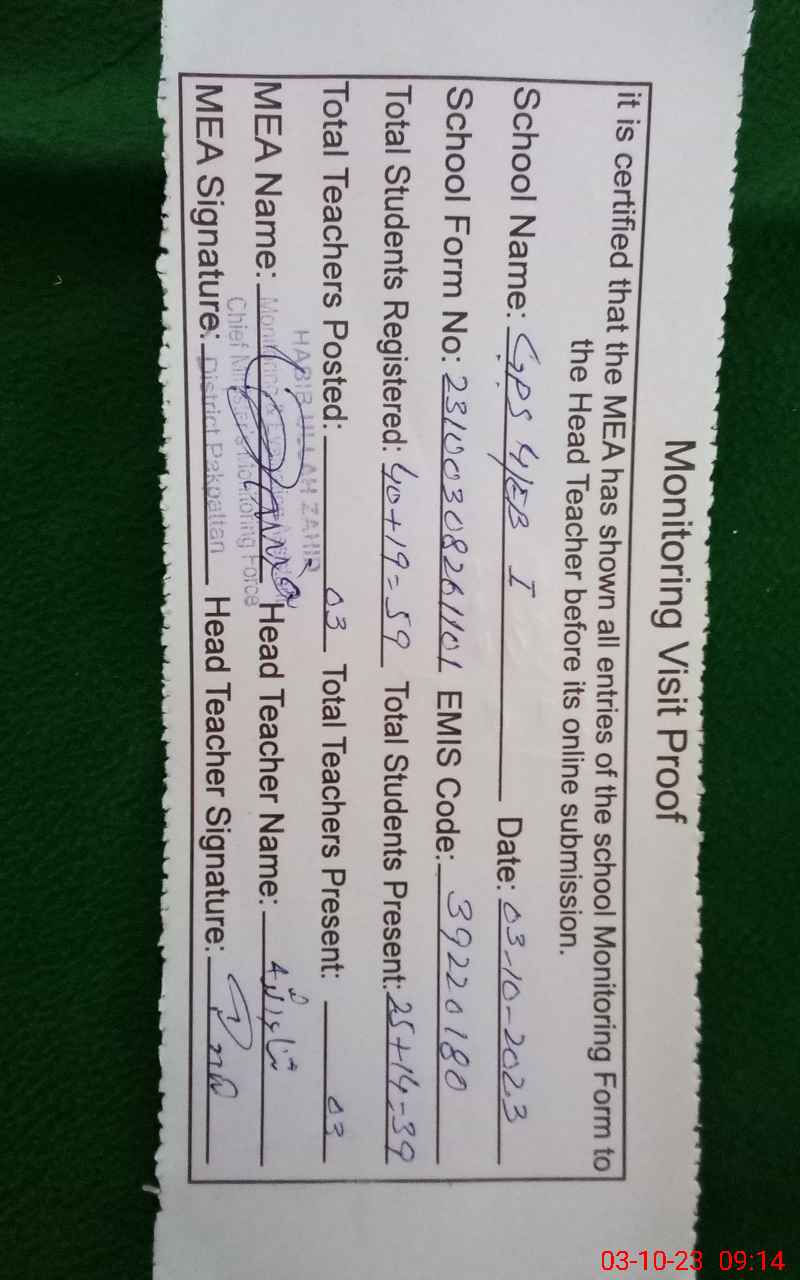 Monitoring Visit Proof
it is certified that the MEA has shown all entries of the school Monitoring Form to
the Head Teacher before its online submission.
School Name: GPS 4/EB I Date: 03-10-2023
School Form No: 23100308261101 EMIS Code: 39220180
Total Students Registered: 40+19=59 Total Students Present: 25+14=39
Total Teachers Posted: 03 Total Teachers Present: 03
HABIB ULLAH ZAHID
MEA Name: Head Teacher Name:
Monitoring & Evaluation
Chief Minister's Monitoring Force
MEA Signature: Head Teacher Signature:
District Pakpattan
03-10-23 09:14